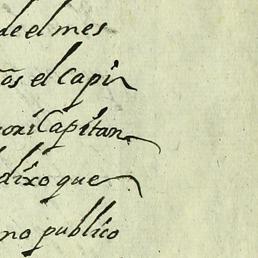 de el mes
os el Capi
Capitan
dixo que
no publico